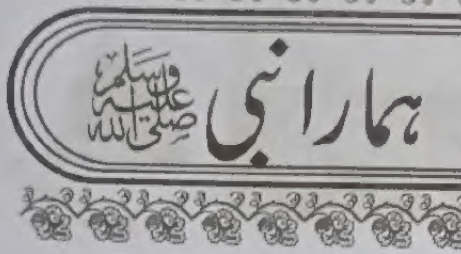 ہمارا نبی صلى الله عليه وسلم